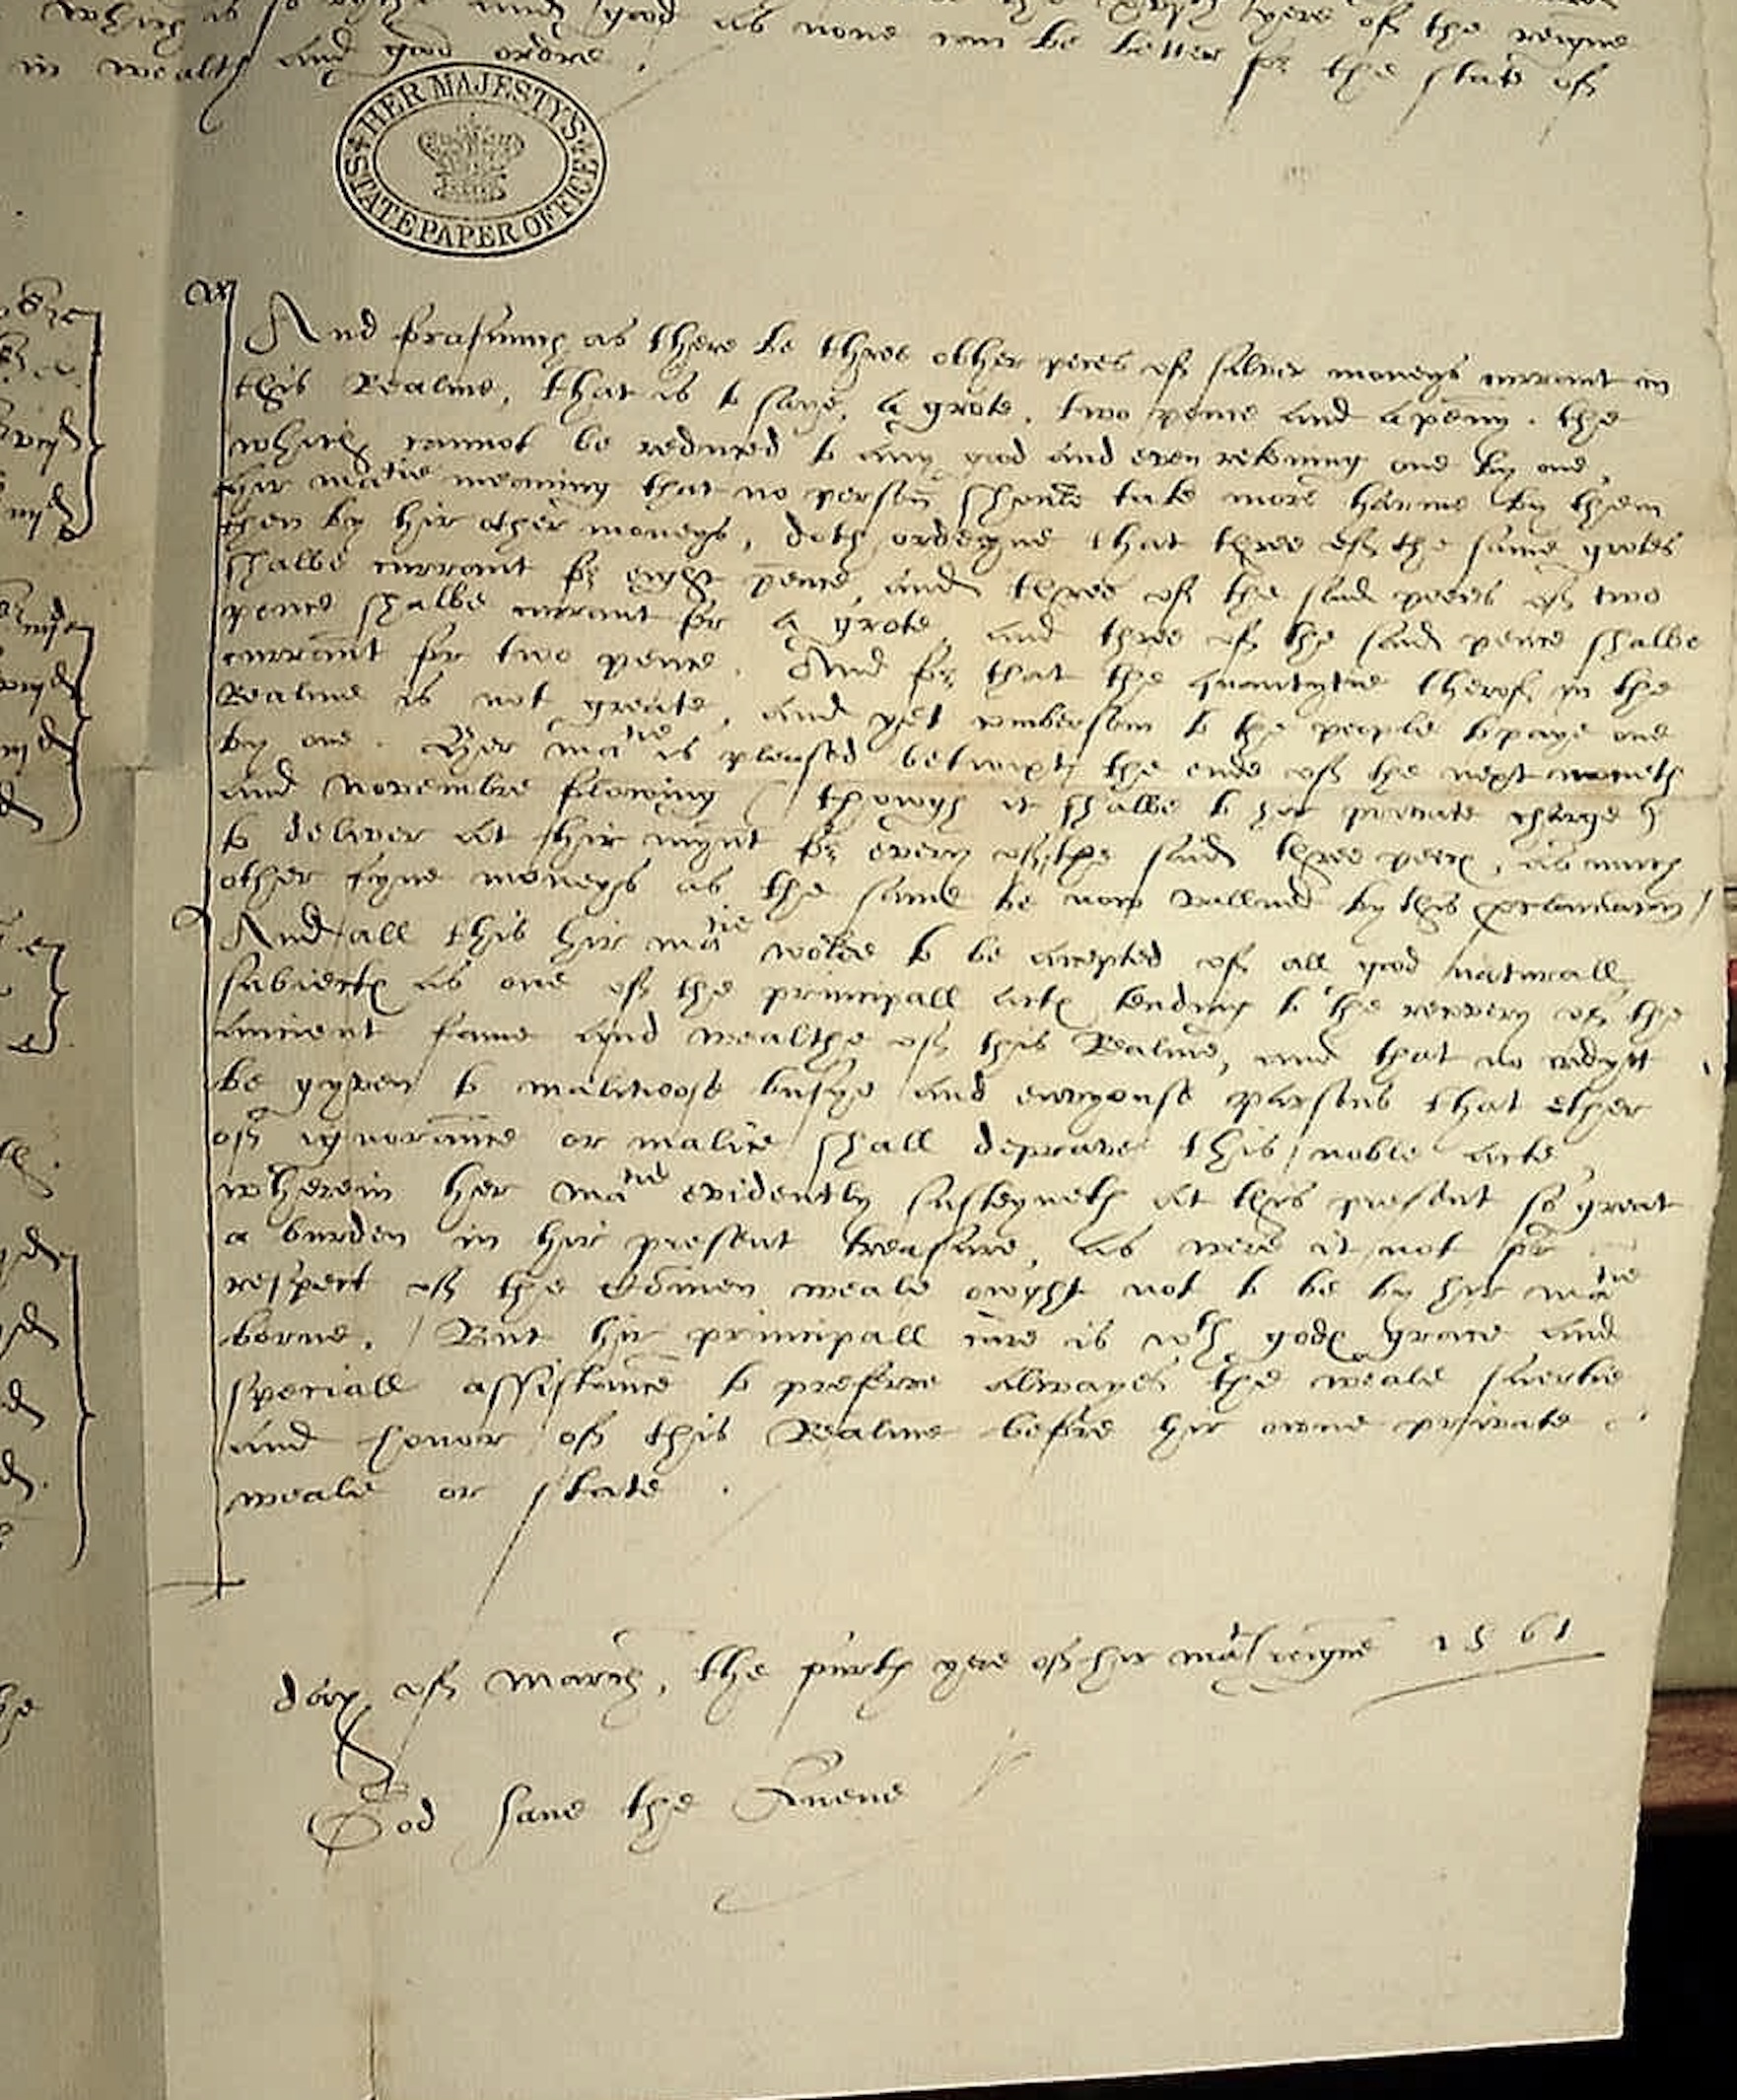 which is so ryche and good as none can be better for the state of
yere of the reigne
in wealth and good ordre.
HER MAJESTY'S
STATE PAPER OFFICE
And forasmuch as there be three other peces of silver moneys currant in
this Realme, that is to saye, a grote, two pence and a penny. the
which cannot be reduced to any good and even rekoning one by one,
hir ma^tie meaning that no person shoulde take more harme by them
then by hir other moneys, doth ordeyne that three of the same grotes
shalbe currant for eight pence, and three of the said peces of two
pence shalbe currant for a grote, and three of the said pence shalbe
currant for two pence. And for that the quantytie therof in the
Realme is not greate, and yet combersom to the people to paye one
by one. Her ma^tie is pleased betwixt the ende of the next moneth
and Novembre folowing (thowgh it shalbe to hir private charge)
to deliver at hir mynt for every of the said three peces, as much
other fyne moneys as the same be now vallued by this proclamation /
And all this hir ma^tie wolde to be accepted of all good naturall
subiectes as one of the principall actes tending to the recovery of the
auncient fame and wealthe of this Realme, and that no credytt
be gyven to malitiose busye and envyouse parsons that ether
of ignorance or malice shall deprave this noble acte,
wherein her ma^tie evidently susteyneth at this present so great
a burden in hir present treasure, as were it not for
respect of the comen weale owght not to be by hir ma^tie
borne. / But hir principall care is w^th godes grace and
speciall assistance to preferre alwayes the weale suertie
and honor of this Realme before hir owne private
weale or state.
daye of March, the fourth yere of hir ma^tes reigne 1561
God save the Quene